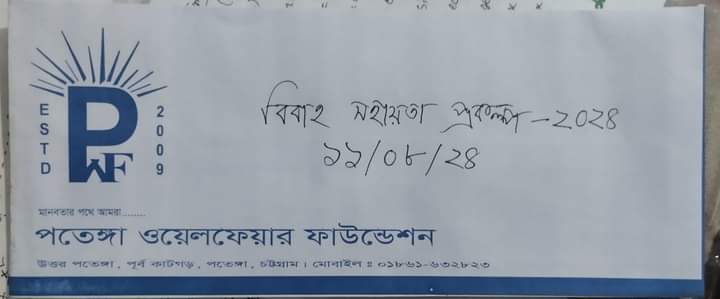 ESTD
2009
PWF
বিবাহ সহায়তা প্রকল্প -২০২৪
১১/০৮/২৪
মানবতার পথে আমরা........
পতেঙ্গা ওয়েলফেয়ার ফাউন্ডেশন
উত্তর পতেঙ্গা, পূর্ব কাটগড়, পতেঙ্গা, চট্টগ্রাম। মোবাইল ঃ ০১৮৬১-৬৩২৮২৩